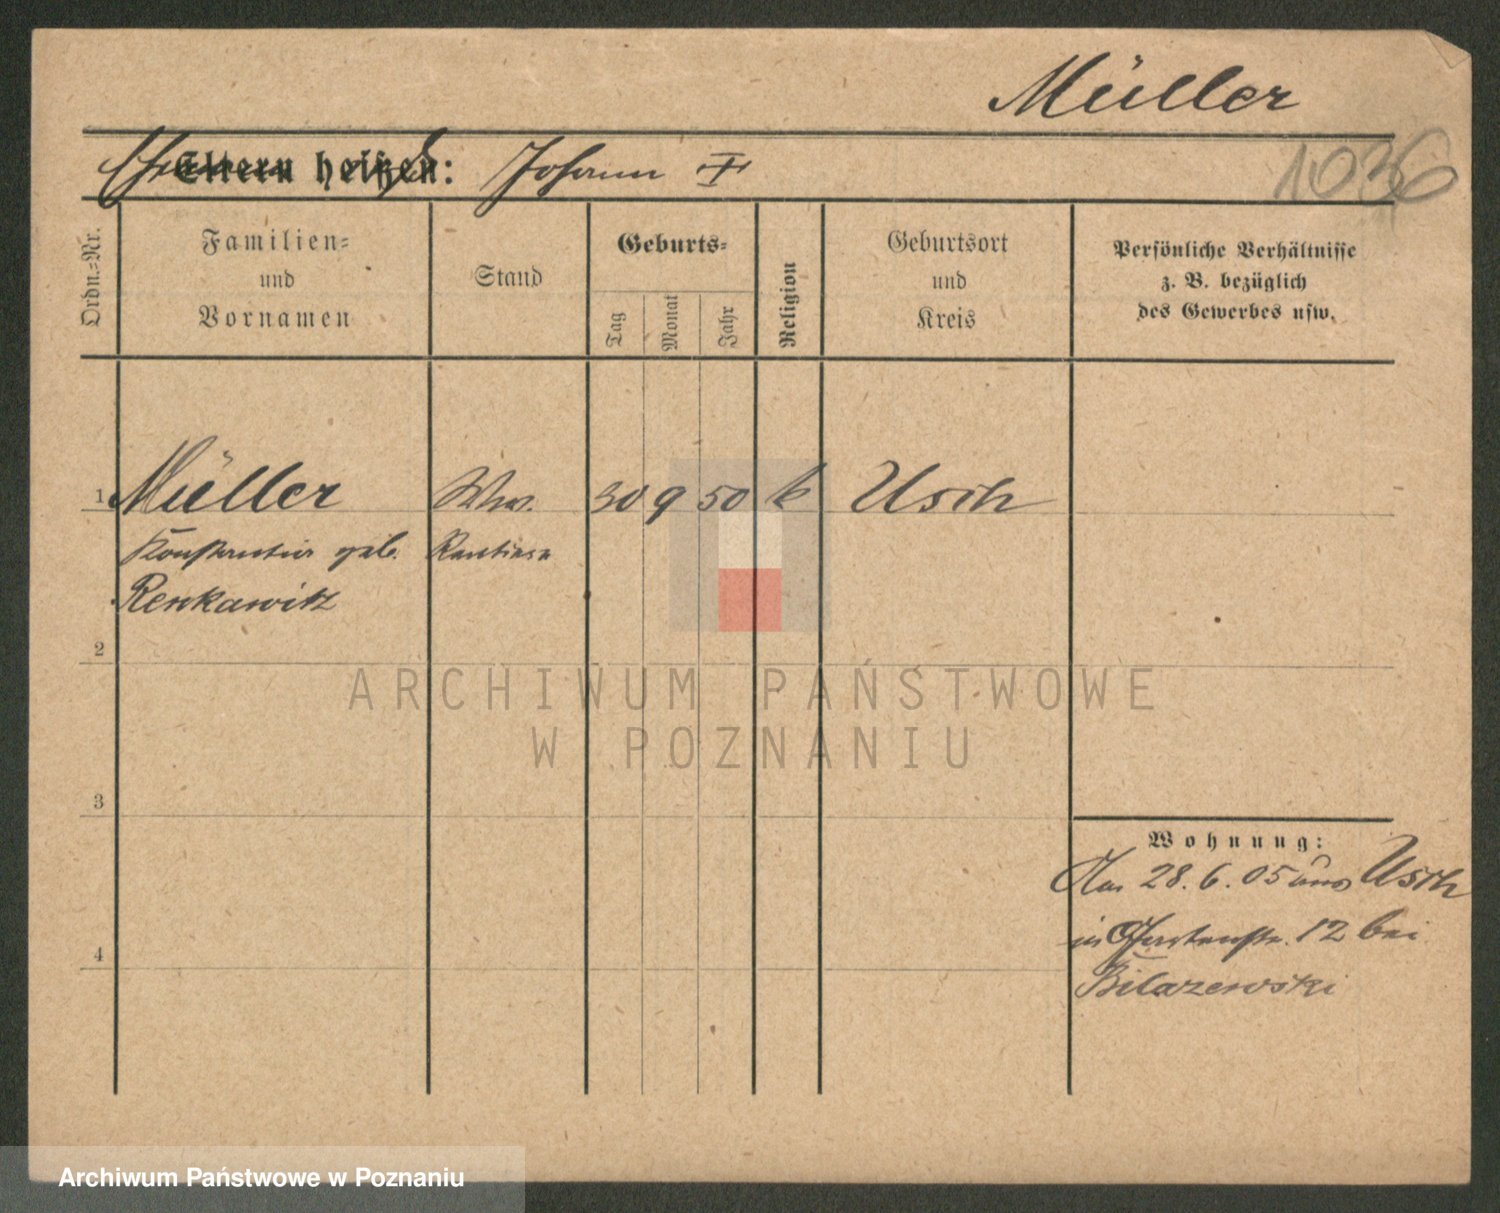 Müller
1036
Eltern heißen: Johann †
Ordn.=Nr.
Familien=
und
Vornamen
Stand
Geburts=
Tag
Monat
Jahr
Religion
Geburtsort
und
Kreis
Persönliche Verhältnisse
z. B. bezüglich
des Gewerbes usw.
1 Müller Ww. 30 9 50 k Usch
geb.
Renkawitz
2
3
4
Wohnung:
28. 6. 05 aus Usch
in Gartenstr. 12 bei
Bilazewski
ARCHIWUM PAŃSTWOWE
W POZNANIU
Archiwum Państwowe w Poznaniu